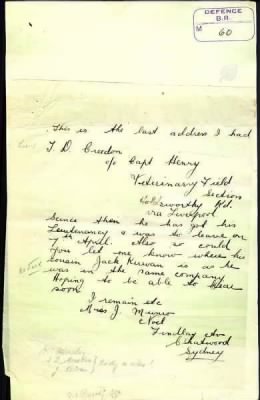 DEFENCE
B.R.
M 60
This is the last address I had
T. D. Creedon
c/o Capt Henry
Veterinary Field
Section
Holdsworthy Rd.
via Liverpool
Since then he has got his
Lieutenancy & was to leave on
7th April. Also so could
you let me know where his
cousin Jack Kirwan is as he
was in the same company
Hoping to be able to hear
soon
I remain etc
Mrs J. Munro
Findlay Ave
Chatswood
Sydney